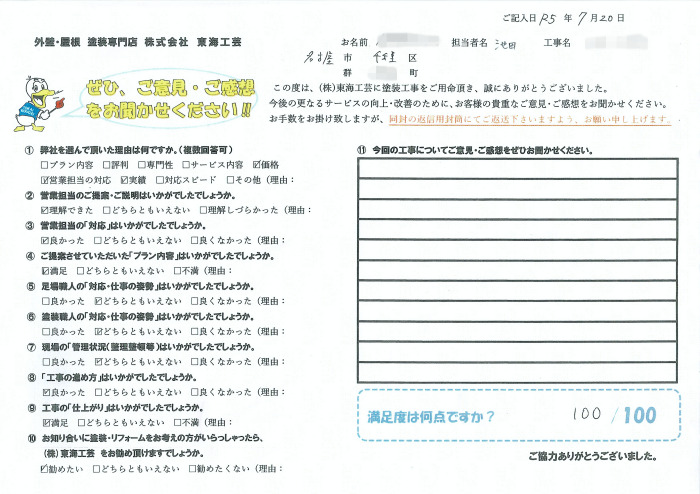 ご記入日 R5 年 7 月 20 日
外壁・屋根 塗装専門店 株式会社 東海工芸
お名前 担当者名 池田 工事名
名古屋 市 千種 区
群 町
ぜひ、ご意見・ご感想
をお聞かせください!!
この度は、(株)東海工芸に塗装工事をご用命頂き、誠にありがとうございました。
今後の更なるサービスの向上・改善のために、お客様の貴重なご意見・ご感想をお聞かせください。
お手数をお掛け致しますが、同封の返信用封筒にてご返送下さいますよう、お願い申し上げます。
① 弊社を選んで頂いた理由は何ですか。(複数回答可)
□プラン内容 □評判 □専門性 □サービス内容 ☑価格
☑営業担当の対応 ☑実績 □対応スピード □その他(理由:
② 営業担当のご提案・ご説明はいかがでしたでしょうか。
☑理解できた □どちらともいえない □理解しづらかった(理由:
③ 営業担当の「対応」はいかがでしたでしょうか。
☑良かった □どちらともいえない □良くなかった(理由:
④ ご提案させていただいた「プラン内容」はいかがでしたでしょうか。
☑満足 □どちらともいえない □不満(理由:
⑤ 足場職人の「対応・仕事の姿勢」はいかがでしたでしょうか。
□良かった ☑どちらともいえない □良くなかった(理由:
⑥ 塗装職人の「対応・仕事の姿勢」はいかがでしたでしょうか。
□良かった ☑どちらともいえない □良くなかった(理由:
⑦ 現場の「管理状況(整理整頓等)はいかがでしたでしょうか。
□良かった ☑どちらともいえない □良くなかった(理由:
⑧ 「工事の進め方」はいかがでしたでしょうか。
☑良かった □どちらともいえない □良くなかった(理由:
⑨ 工事の「仕上がり」はいかがでしたでしょうか。
☑満足 □どちらともいえない □不満(理由:
⑩ お知り合いに塗装・リフォームをお考えの方がいらっしゃったら、
(株)東海工芸 をお勧め頂けますでしょうか。
☑勧めたい □どちらともいえない □勧めたくない(理由:
⑪ 今回の工事についてご意見・ご感想をぜひお聞かせください。
満足度は何点ですか? 100 /100
ご協力ありがとうございました。